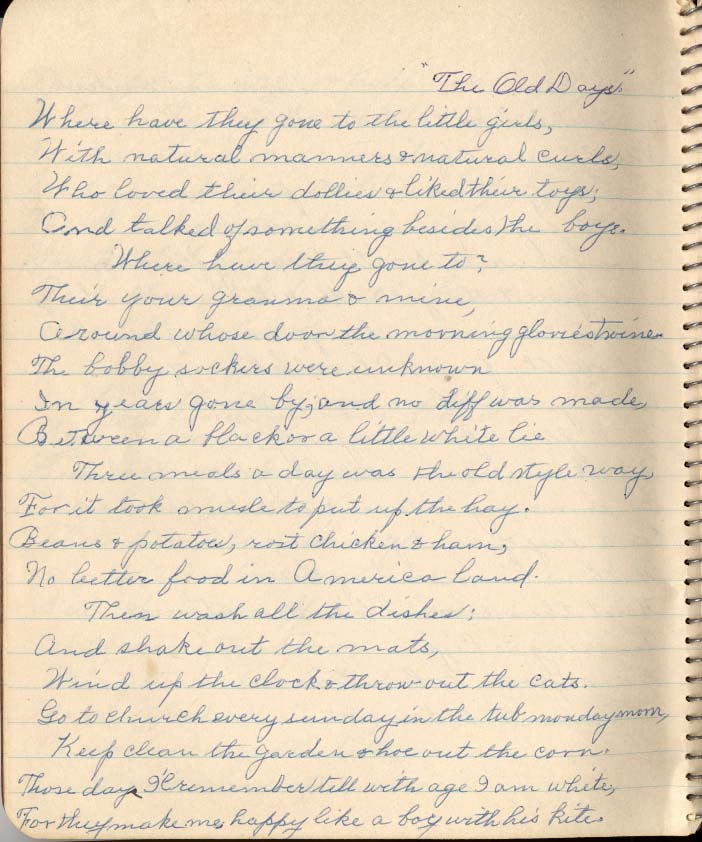 "The Old Days"
Where have they gone to the little girls,
With natural manners & natural curls,
Who loved their dollies & liked their toys;
And talked of something besides the boys.
Where have they gone to?
Their your granma & mine,
Around whose door the morning glories twine.
The bobby sockers were unknown
In years gone by, and no diff was made,
Between a black or a little white lie
Three meals a day was the old style way,
For it took musle to put up the hay.
Beans & potatoes, rost chicken & ham,
No better food in America land.
Then wash all the dishes;
And shake out the mats,
Wind up the clock & throw out the cats.
Go to church every sunday in the tub monday morn,
Keep clean the garden & hoe out the corn.
Those day I'll remember till with age I am white,
For they make me happy like a boy with his kite.